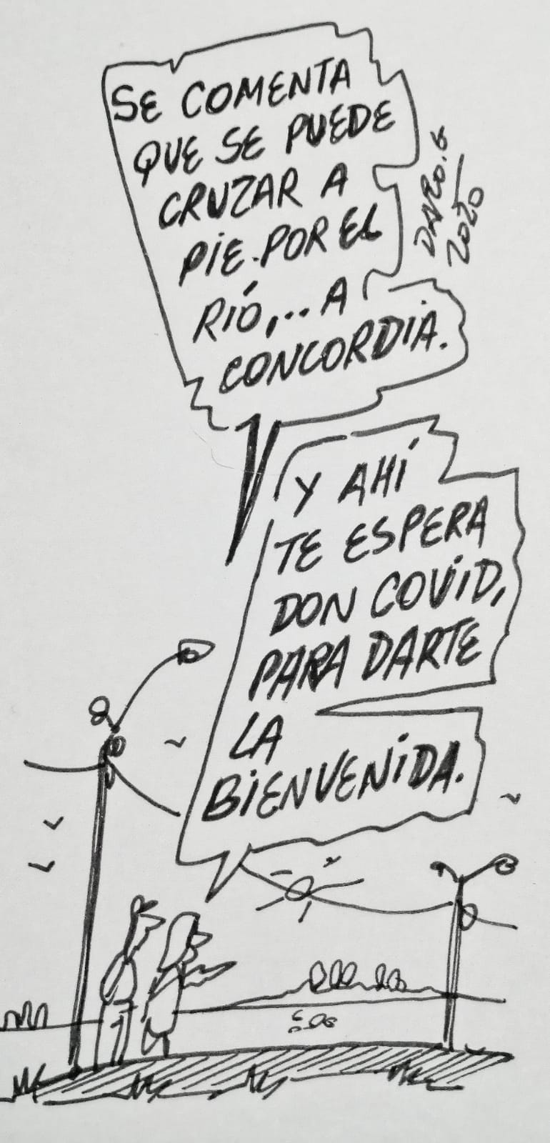 SE COMENTA
QUE SE PUEDE
CRUZAR A
PIE.POR EL
RÍO,... A
CONCORDIA.
Y AHÍ
TE ESPERA
DON COVID,
PARA DARTE
LA
BIENVENIDA.
2020